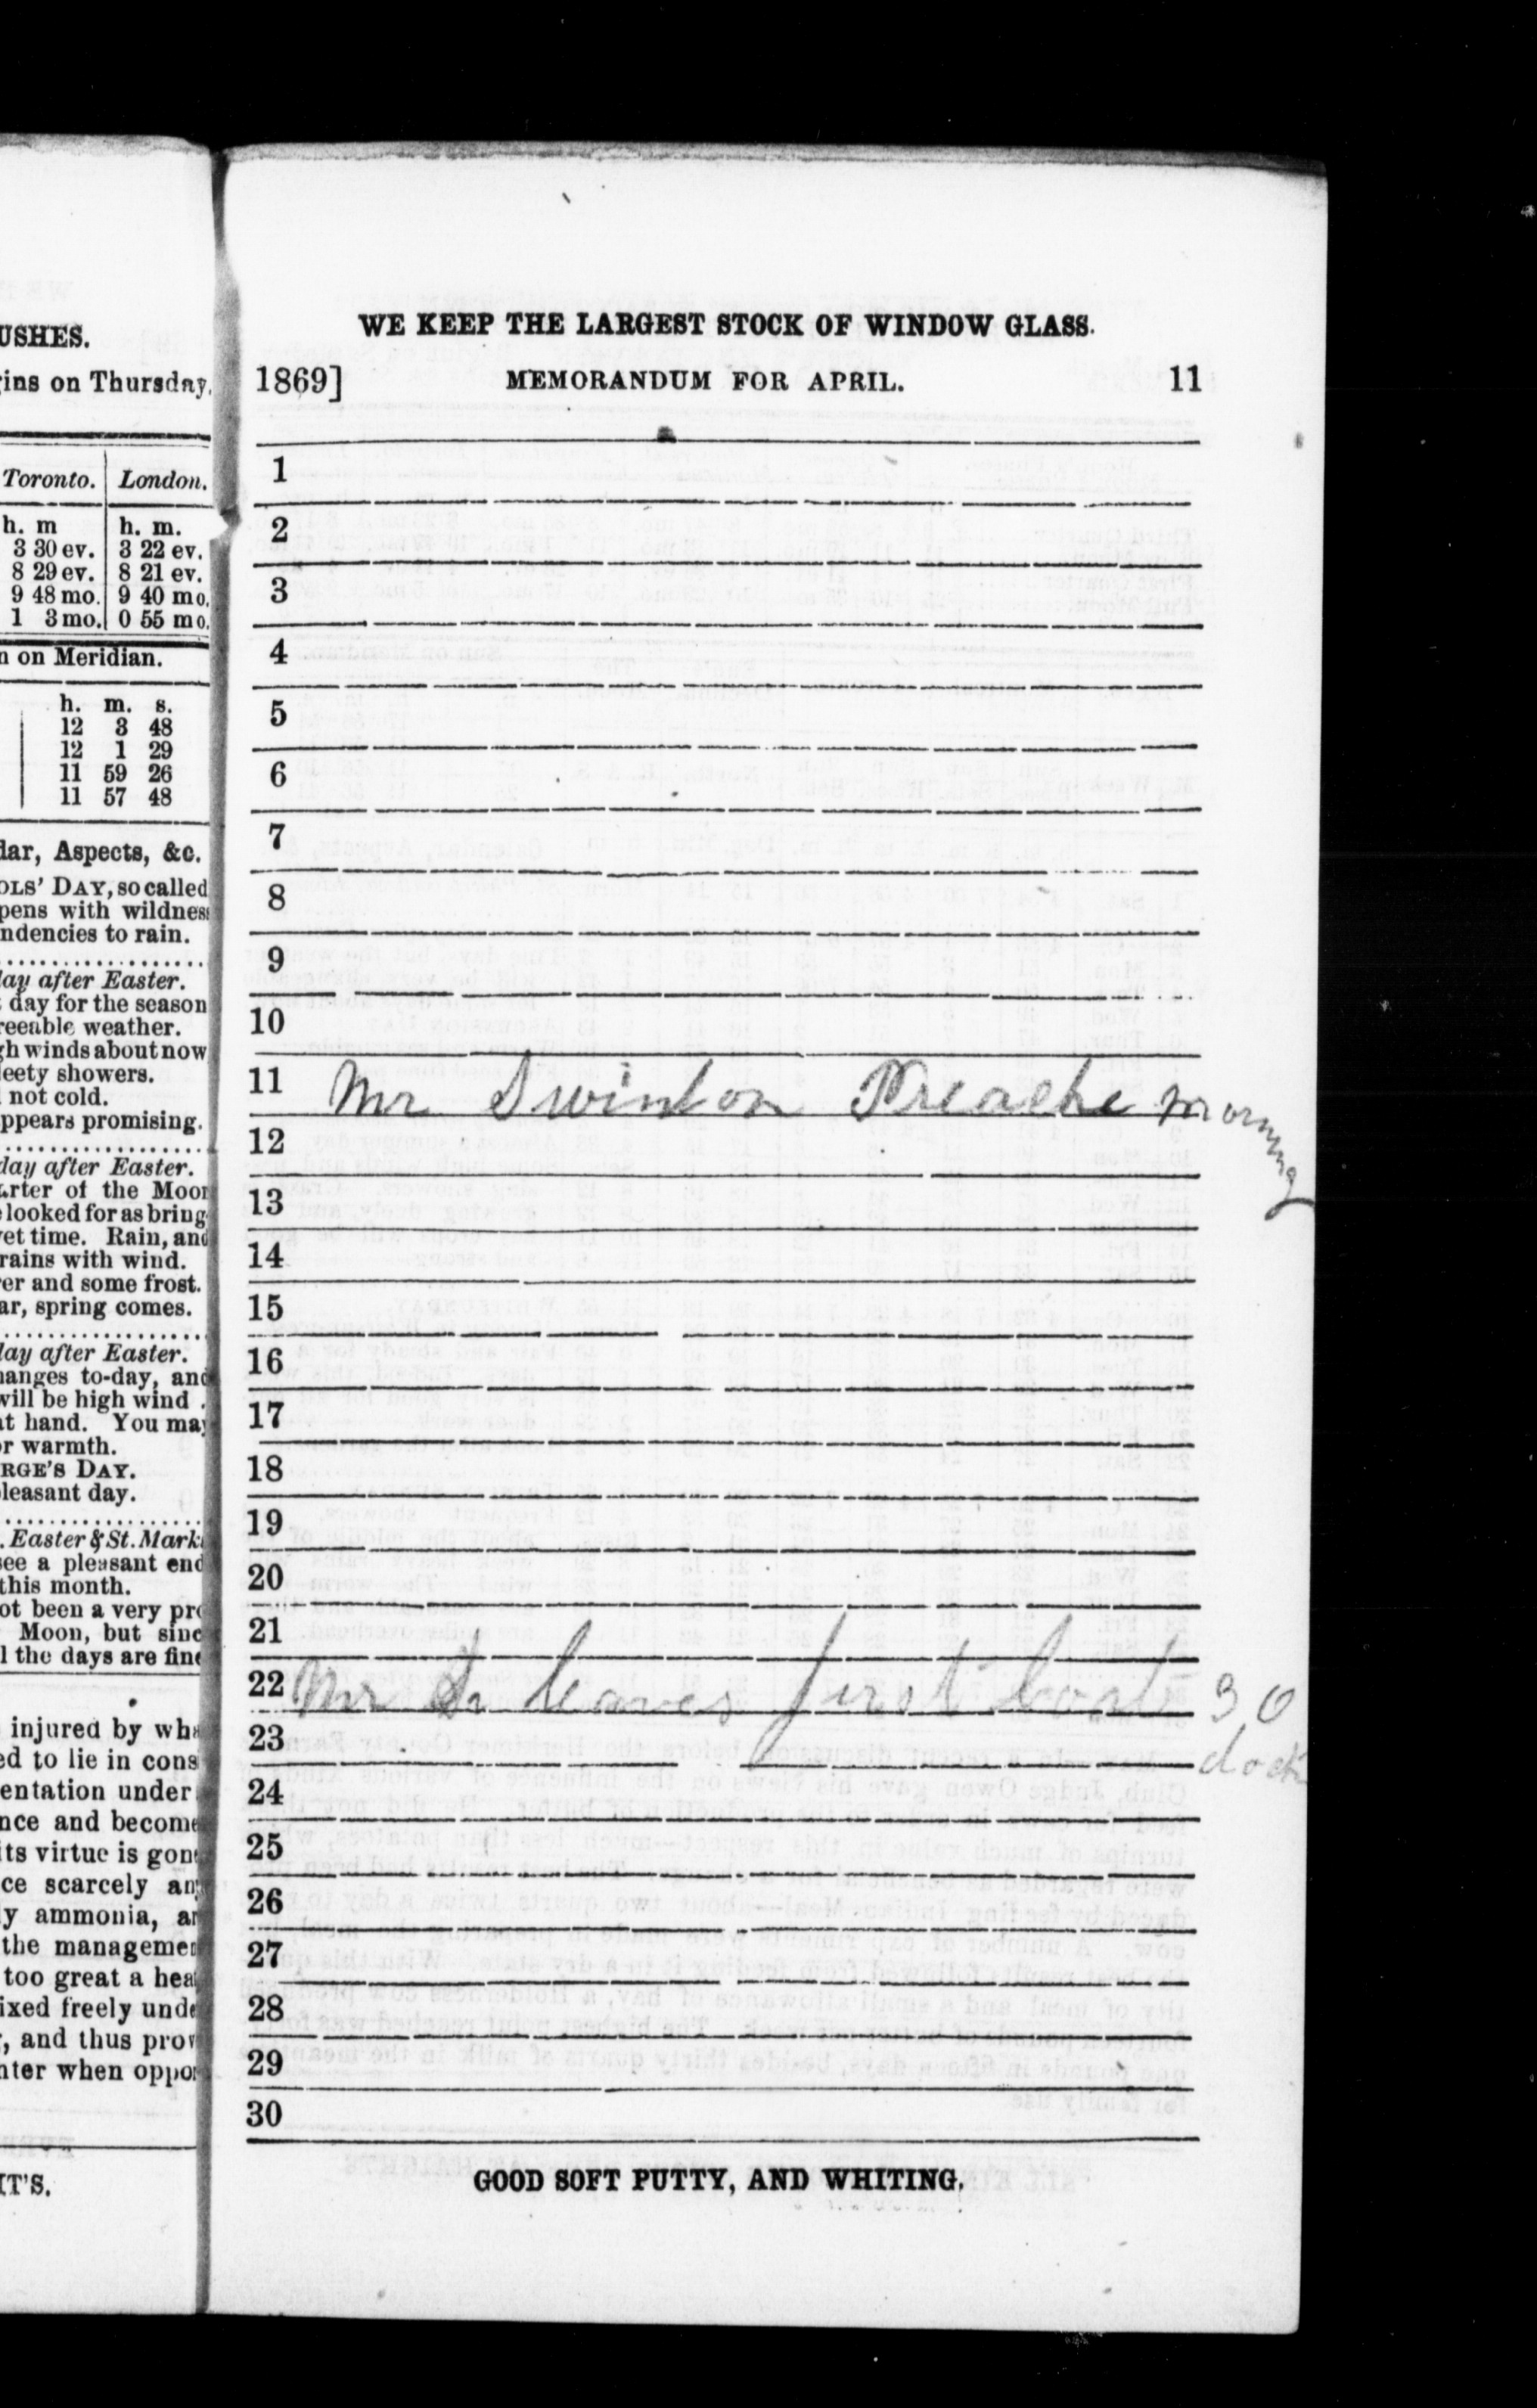 USHES.
ins on Thursday,
Toronto. London.
h. m h. m.
3 30 ev. 3 22 ev.
8 29 ev. 8 21 ev.
9 48 mo. 9 40 mo.
1 3 mo. 0 55 mo.
n on Meridian.
h. m. s.
12 3 48
12 1 29
11 59 26
11 57 48
dar, Aspects, &c.
OLS' DAY, so called
pens with wildness
ndencies to rain.
day after Easter.
day for the season
reeable weather.
gh winds about now
leety showers.
not cold.
ppears promising.
day after Easter.
arter of the Moon
looked for as bring
vet time. Rain, and
rains with wind.
er and some frost.
ar, spring comes.
day after Easter.
hanges to-day, and
will be high wind
at hand. You may
or warmth.
RGE'S DAY.
pleasant day.
. Easter & St. Mark
see a pleasant end
this month.
ot been a very pro
Moon, but sinc
l the days are fine
injured by wha
ed to lie in cons
entation under
nce and become
its virtue is gone
ce scarcely any
ly ammonia, an
the managemen
too great a hea
ixed freely unde
, and thus prov
nter when oppor
IT'S.
WE KEEP THE LARGEST STOCK OF WINDOW GLASS.
1869] MEMORANDUM FOR APRIL. 11
1
2
3
4
5
6
7
8
9
10
11 Mr Swinton Preache morning
12
13
14
15
16
17
18
19
20
21
22 Mr S. leaves first boat 3 O
clock
23
24
25
26
27
28
29
30
GOOD SOFT PUTTY, AND WHITING.